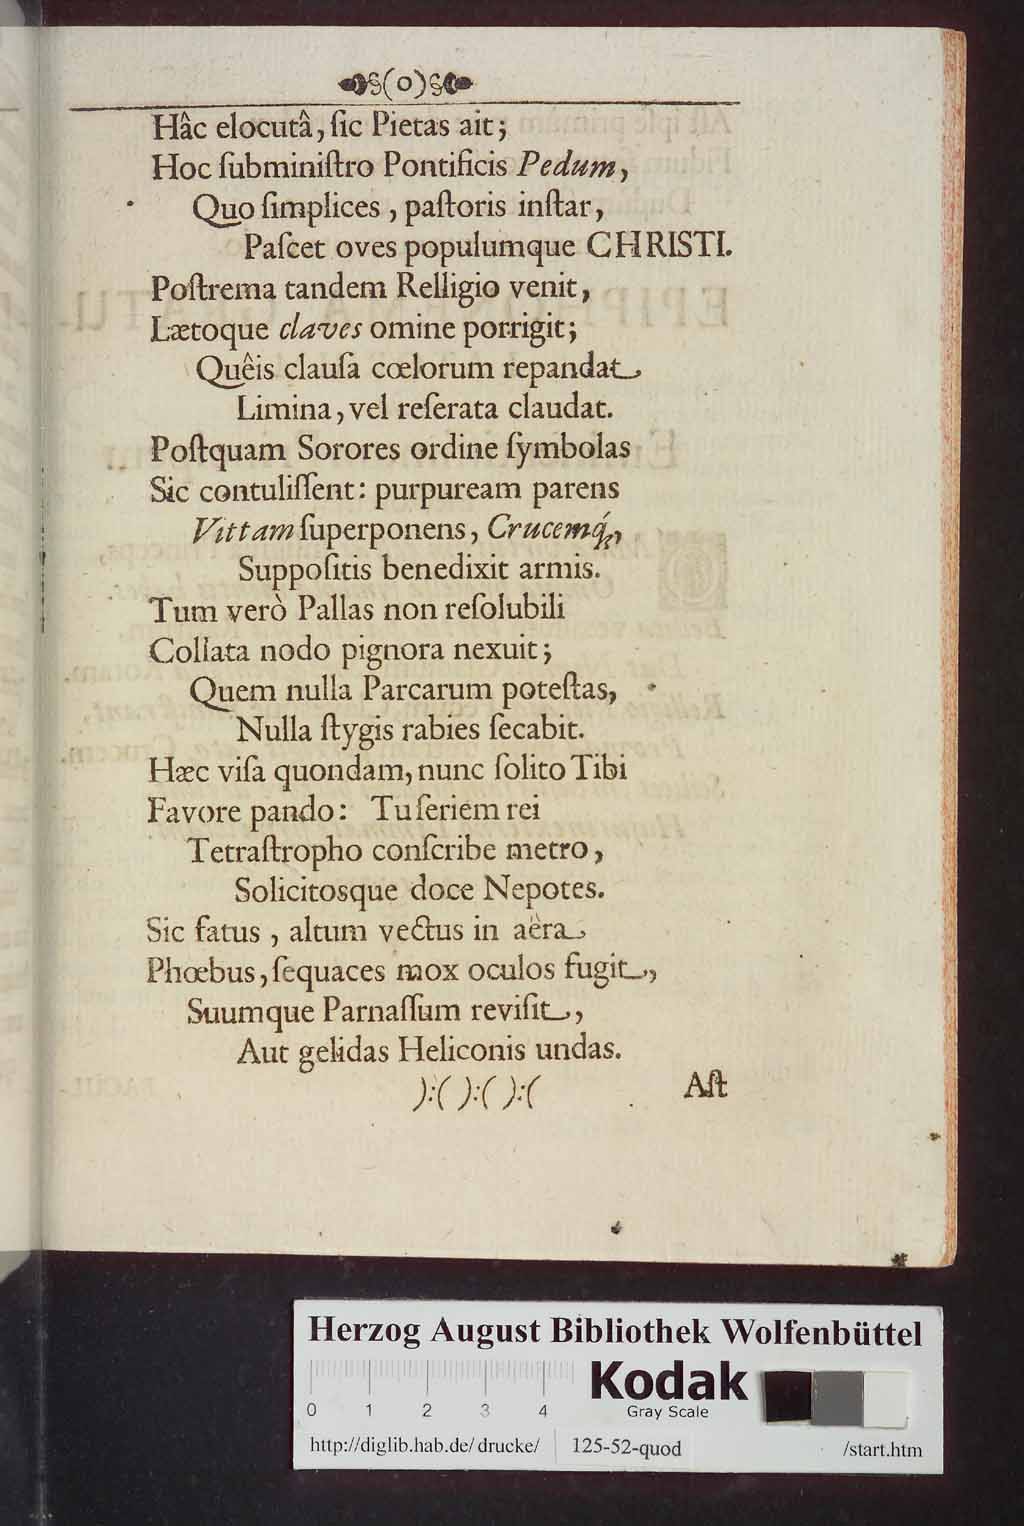 §(o)§
Hâc elocutâ, ſic Pietas ait;
Hoc ſubminiſtro Pontificis Pedum,
Quo ſimplices, paſtoris inſtar,
Paſcet oves populumque CHRISTI.
Poſtrema tandem Relligio venit,
Lætoque claves omine porrigit;
Quêis clauſa cœlorum repandat,
Limina, vel reſerata claudat.
Poſtquam Sorores ordine ſymbolas
Sic contuliſſent: purpuream parens
Vittam ſuperponens, Crucemq́;,
Suppoſitis benedixit armis.
Tum verò Pallas non reſolubili
Collata nodo pignora nexuit;
Quem nulla Parcarum poteſtas,
Nulla ſtygis rabies ſecabit.
Hæc viſa quondam, nunc ſolito Tibi
Favore pando: Tu ſeriem rei
Tetraſtropho conſcribe metro,
Solicitosque doce Nepotes.
Sic fatus, altum vectus in aëra
Phœbus, ſequaces mox oculos fugit,
Suumque Parnaſſum reviſit,
Aut gelidas Heliconis undas.
):( ):( ):(
Aſt
Herzog August Bibliothek Wolfenbüttel
Kodak
Gray Scale
0 1 2 3 4
http://diglib.hab.de/drucke/ 125-52-quod /start.htm